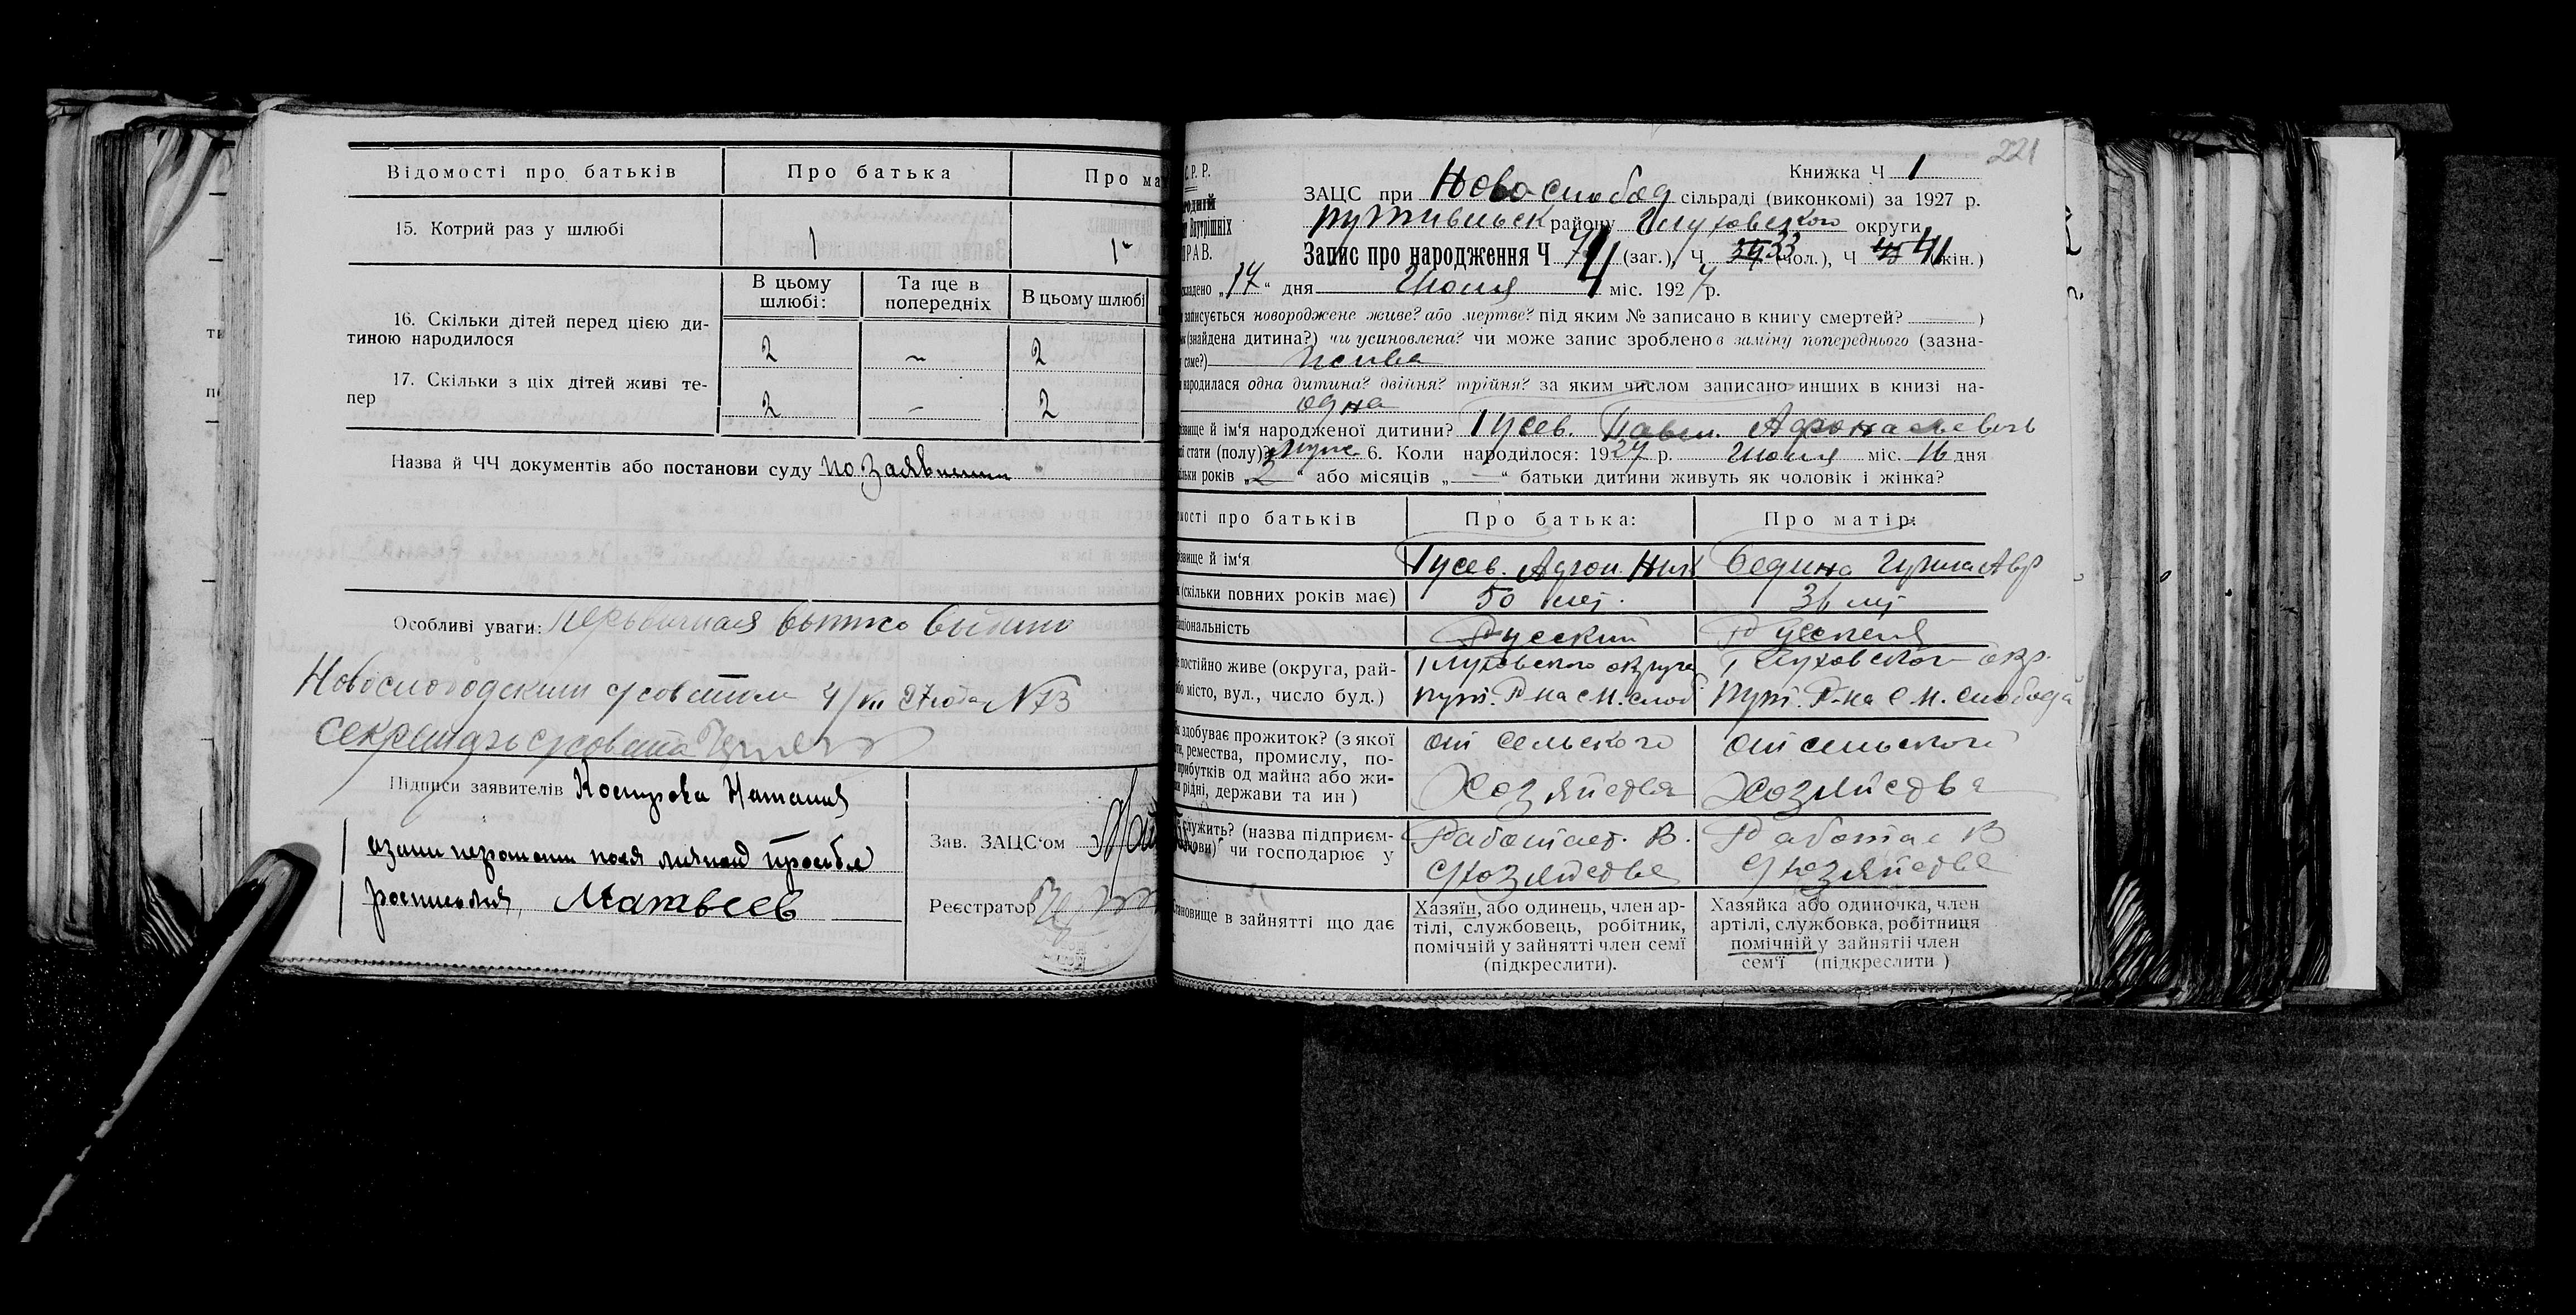 Відомості про батьків
Про батька
Про ма
15. Котрий раз у шлюбі
1
1
В цьому шлюбі:
Та ще в попередніх
В цьому шлюбі
16. Скільки дітей перед цією ди-
тиною народилося
2
2
17. Скільки з ціх дітей живі те-
пер
2
2
Назва й ЧЧ документів або постанови суду по заявлении
Особливі уваги:
4/VII 27 года N 73
Секретарь с/совета
Підписи заявителів Кострова Наталия
росписался, Матвеев
Зав. ЗАЦС'ом
Реєстратор
221
С.Р.Р.
Книжка Ч 1
ЗАЦС при Новослобод сільраді (виконкомі) за 1927 р.
Внутрішніх
Путивльск району Глуховского округи
ПРАВ.
Запис про народження Ч 74 (заг.), Ч 33 (чол.), Ч 41 (жін.)
17 " дня Июля міс. 1927 р.
записується новороджене живе? або мертве? під яким № записано в книгу смертей? )
(знайдена дитина?) чи усиновлена? чи може запис зроблено в заміну попереднього (зазна-
саме?)
народилася одна дитина? двійня? трійня? за яким числом записано инших в книзі на-
одна
звище й ім'я народженої дитини? Гусев. Павел. Афонасьевич
стати (полу)? муж 6. Коли народилося: 1927 р. Июля міс. 16 дня
років „2" або місяців „—" батьки дитини живуть як чоловік і жінка?
ості про батьків
Про батька:
Про матір:
звище й ім'я
Гусев. Афон. Ник
(скільки повних років має)
50 лет.
36 лет
аціональність
Русский
Русская
постійно живе (округа, рай-
або місто, вул., число буд.)
Глуховского округа
Пут. Р-на с Н. слоб
Глуховского окр.
Пут. Р-на с Н. слобода
здобуває прожиток? (з якої
ремества, промислу, по-
прибутків од майна або жи-
рідні, держави та ин)
от сельского
хозяйства
от сельского
хозяйства
служить? (назва підприєм-
чи господарює у
Работает. в.
с/хозяйстве
Работае в
с/хозяйстве
тановище в зайнятті що дає
Хазяїн, або одинець, член ар-
тілі, службовець, робітник,
помічній у зайнятті член семї
(підкреслити).
Хазяйка або одиночка, член
артілі, службовка, робітниця
помічній у зайнятіі член
сем'ї (підкреслити)